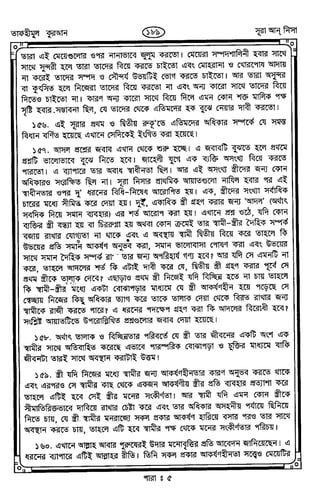 তাফহীমুল কুরআন
১৮৯
সূরা আন্ নিসা
তারা এই মেয়েগুলোর ওপর নানাভাবে জুলুম করতো। মেয়েরা সম্পদশালিনী হবার সাথে
সাথে সুন্দরী হলে তারা তাদের বিয়ে করতে চাইতো এবং মোহরানা ও খোরপোষ আদায়
না করেই তাদের সম্পদ ও সৌন্দর্য উভয়টিই ভোগ করতে চাইতো। আর তারা অসুন্দর
বা কুৎসিত হলে নিজেরা তাদের বিয়ে করতো না এবং অন্য কারো সাথে তাদের বিয়ে
দিতেও চাইতো না। কারণ অন্য কারো সাথে বিয়ে দিলে এমন কোন শক্ত মালিক পক্ষ
সৃষ্টি হবার সম্ভাবনা ছিল, যে তাদের থেকে এতিমদের হক বুঝে নেয়ার দাবী করতো।
১৫৬. এই সূরার প্রথম ও দ্বিতীয় রুকূ'তে এতিমদের অধিকার সম্পর্কে যে সমস্ত
বিধান বর্ণিত হয়েছে এখানে সেদিকেই ইংগিত করা হয়েছে।
১৫৭. আসল প্রশ্নের জবাব এখান থেকে শুরু হচ্ছে। এ জবাবটি বুঝতে হলে প্রথমে
প্রশ্নটি ভালোভাবে বুঝে নিতে হবে। জাহেলী যুগে এক ব্যক্তি অসংখ্য বিয়ে করতে
পারতো। এ ব্যাপারে তার অবাধ স্বাধীনতা ছিল। আর এই অসংখ্য স্ত্রীদের জন্য কোন
অধিকারও সংরক্ষিত ছিল না। সূরা নিসার প্রাথমিক আয়াতগুলো নাযিল হবার পর এই
স্বাধীনতার ওপর দু' ধরনের বিধি-নিষেধ আরোপিত হয়। এক, স্ত্রীদের সংখ্যা সর্বাধিক
চারের মধ্যে সীমিত করে দেয়া হয়। দুই, একাধিক স্ত্রী গ্রহণ করার জন্য 'আদল' (অর্থাৎ
সবদিক দিয়ে সমান ব্যবহার) এর শর্ত আরোপ করা হয়। এখানে প্রশ্ন ওঠে, যদি কোন
ব্যক্তির স্ত্রী বন্ধ্যা হয় বা চিররুগ্না হয় অথবা কোন ক্রমেই তার স্বামী-স্ত্রীর দৈহিক সম্পর্ক
বজায় রাখার যোগ্যতা না থাকে এবং এ অবস্থায় স্বামী দ্বিতীয় বিয়ে করে তাহলে কি
উভয়ের প্রতি সমান আকর্ষণ অনুভব করা, সমান ভালোবাসা পোষণ করা এবং উভয়ের
সাথে সমান দৈহিক সম্পর্ক রা তার জন্য অপরিহার্য গণ্য হবে? আর যদি সে এমনটি না
করে, তাহলে আদলের শর্ত কি এটাই দাবী করে যে, দ্বিতীয় স্ত্রী গ্রহণ করার পূর্বে সে
প্রথম স্ত্রীকে তালাক দেবে? এছাড়াও প্রথম স্ত্রী নিজেই যদি বিচ্ছিন্ন হতে না চায় তাহলে
কি স্বামী-স্ত্রীর মধ্যে একটা বোঝাপড়ার মাধ্যমে যে স্ত্রী আকর্ষণহীন হয়ে পড়েছে সে
স্বেচ্ছায় নিজের কিছু অধিকার ত্যাগ করে তাকে তালাক দেয়া থেকে বিরত রাখার জন্য
স্বামীকে রাজী করতে পারে? এ ধরনের পদক্ষেপ গ্রহণ করা কি আদলের বিরোধী হবে?
সংশ্লিষ্ট আয়াতটিতে উপরোল্লিখিত প্রশ্নগুলোর জবাব দেয়া হয়েছে।
১৫৮. অর্থাৎ তালাক ও বিচ্ছিন্নতার পরিবর্তে যে স্ত্রী তার জীবনের একটি অংশ এক
স্বামীর সাথে অতিবাহিত করেছে এভাবে পারস্পরিক বোঝাপড়া ও চুক্তির মাধ্যমে বাকি
জীবনটা তারই সাথে অবস্থান করাটাই উত্তম।
১৫৯. স্ত্রী যদি নিজের মধ্যে স্বামীর জন্য আকর্ষণহীনতার কারণ অনুভব করতে থাকে
এবং এরপরও সে স্বামীর কাছ থেকে একজন আকর্ষণীয়া স্ত্রীর প্রতি ব্যবহার প্রত্যাশা করে
তাহলে এটিই হবে সেই স্ত্রীর মনের সংকীর্ণতা। আর স্বামী যদি এমন কোন স্ত্রীকে
সীমাতিরিক্তভাবে দাবিয়ে রাখার চেষ্টা করে এবং তার অধিকার অসহনীয় পর্যায়ে ছিনিয়ে
নিতে চায়, যে স্ত্রী স্বামীর মনরাজ্যে সকল প্রকার আকর্ষণ হারিয়ে বসার পরও তার সাথে
অবস্থান করতে চায়, তাহলে এটি হবে স্বামীর পক্ষ থেকে মনের সংকীর্ণতার পরিচয়।
১৬০. এখানে আল্লাহ আবার পুরুষেরই উদার মনোবৃত্তির প্রতি আবেদন জানিয়েছেন। এ
ধরনের ব্যাপারে এটিই আল্লাহর রীতি। তিনি সকল প্রকার আকর্ষণহীনতা সত্ত্বেও মেয়েটির
পারা : ৫